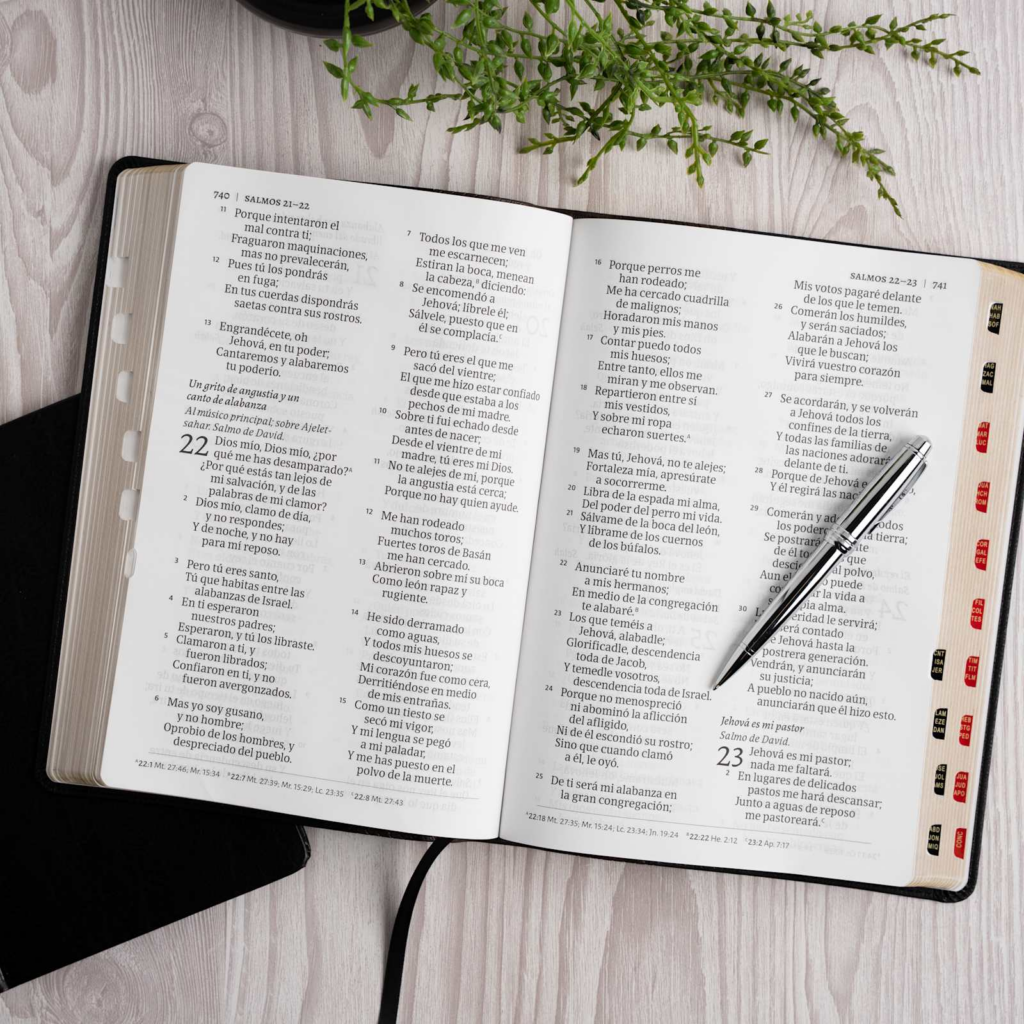 740 | SALMOS 21–22
11 Porque intentaron el
mal contra ti;
Fraguaron maquinaciones,
mas no prevalecerán,
12 Pues tú los pondrás
en fuga;
En tus cuerdas dispondrás
saetas contra sus rostros.
13 Engrandécete, oh
Jehová, en tu poder;
Cantaremos y alabaremos
tu poderío.
Un grito de angustia y un
canto de alabanza
Al músico principal; sobre Ajelet-
sahar. Salmo de David.
22 Dios mío, Dios mío, ¿por
qué me has desamparado?A
¿Por qué estás tan lejos de
mi salvación, y de las
palabras de mi clamor?
2 Dios mío, clamo de día,
y no respondes;
Y de noche, y no hay
para mí reposo.
3 Pero tú eres santo,
Tú que habitas entre las
alabanzas de Israel.
4 En ti esperaron
nuestros padres;
Esperaron, y tú los libraste.
5 Clamaron a ti, y
fueron librados;
Confiaron en ti, y no
fueron avergonzados.
6 Mas yo soy gusano,
y no hombre;
Oprobio de los hombres, y
despreciado del pueblo.
7 Todos los que me ven
me escarnecen;
Estiran la boca, menean
la cabeza,B diciendo:
8 Se encomendó a
Jehová; líbrele él;
Sálvele, puesto que en
él se complacía.C
9 Pero tú eres el que me
sacó del vientre;
El que me hizo estar confiado
desde que estaba a los
pechos de mi madre.
10 Sobre ti fui echado desde
antes de nacer;
Desde el vientre de mi
madre, tú eres mi Dios.
11 No te alejes de mí, porque
la angustia está cerca;
Porque no hay quien ayude.
12 Me han rodeado
muchos toros;
Fuertes toros de Basán
me han cercado.
13 Abrieron sobre mí su boca
Como león rapaz y
rugiente.
14 He sido derramado
como aguas,
Y todos mis huesos se
descoyuntaron;
Mi corazón fue como cera,
Derritiéndose en medio
de mis entrañas.
15 Como un tiesto se
secó mi vigor,
Y mi lengua se pegó
a mi paladar,
Y me has puesto en el
polvo de la muerte.
A22:1 Mt. 27:46; Mr. 15:34 B22:7 Mt. 27:39; Mr. 15:29; Lc. 23:35 C22:8 Mt. 27:43
SALMOS 22–23 | 741
16 Porque perros me
han rodeado;
Me ha cercado cuadrilla
de malignos;
Horadaron mis manos
y mis pies.
17 Contar puedo todos
mis huesos;
Entre tanto, ellos me
miran y me observan.
18 Repartieron entre sí
mis vestidos,
Y sobre mi ropa
echaron suertes.A
19 Mas tú, Jehová, no te alejes;
Fortaleza mía, apresúrate
a socorrerme.
20 Libra de la espada mi alma,
Del poder del perro mi vida.
21 Sálvame de la boca del león,
Y líbrame de los cuernos
de los búfalos.
22 Anunciaré tu nombre
a mis hermanos;
En medio de la congregación
te alabaré.B
23 Los que teméis a
Jehová, alabadle;
Glorificadle, descendencia
toda de Jacob,
Y temedle vosotros,
descendencia toda de Israel.
24 Porque no menospreció
ni abominó la aflicción
del afligido,
Ni de él escondió su rostro;
Sino que cuando clamó
a él, le oyó.
25 De ti será mi alabanza en
la gran congregación;
Mis votos pagaré delante
de los que le temen.
26 Comerán los humildes,
y serán saciados;
Alabarán a Jehová los
que le buscan;
Vivirá vuestro corazón
para siempre.
27 Se acordarán, y se volverán
a Jehová todos los
confines de la tierra,
Y todas las familias de
las naciones adorará
delante de ti.
28 Porque de Jehová e
Y él regirá las
29 Comerán y ad odos
los poder tierra;
Se postrará
de él to que
desci al polvo,
Aun el puede
co r la vida a
pia alma.
30 eridad le servirá;
será contado
e Jehová hasta la
postrera generación.
Vendrán, y anunciarán
su justicia;
A pueblo no nacido aún,
anunciarán que él hizo esto.
Jehová es mi pastor
Salmo de David.
23 Jehová es mi pastor;
nada me faltará.
2 En lugares de delicados
pastos me hará descansar;
Junto a aguas de reposo
me pastoreará.C
A22:18 Mt. 27:35; Mr. 15:24; Lc. 23:34; Jn. 19:24 B22:22 He. 2:12 C23:2 Ap. 7:17
NAH HAB SOF
HAG ZAC MAL
MAT MAR LUC
JUA HCH ROM
COR GAL EFE
FIL COL TES
CNT ISA JER
TIM TIT FLM
LAM EZE DAN
HEB STG PED
OSE JOL AMS
JUA JUD APO
ABD JON MIQ
CONC